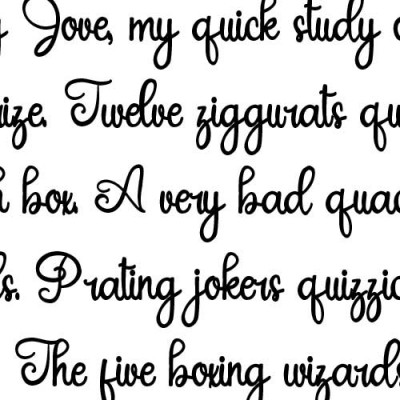 y Jove, my quick study o
ize. Twelve ziggurats qu
h box. A very bad quac
ls. Prating jokers quizzic
The five boxing wizards